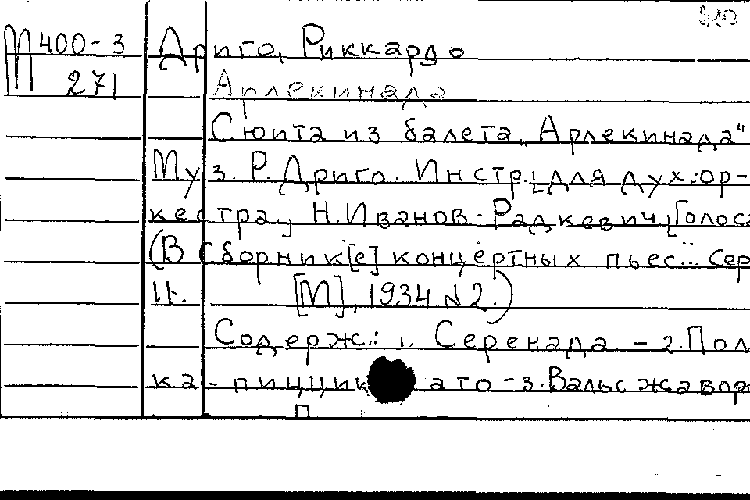 М400-3 Дриго, Риккардо
271 Арлекинада
Сюита из балета „Арлекинада"
Муз. Р. Дриго. Инстр. [для дух. ор-
кестра] Н. Иванов-Радкевич. [Голоса
(В Сборник[е] концертных пьес... Сер
II. [М], 1934 № 2.)
Содерж.: 1. Серенада - 2. Пол
ка-пиццикато - 3. Вальс жавор